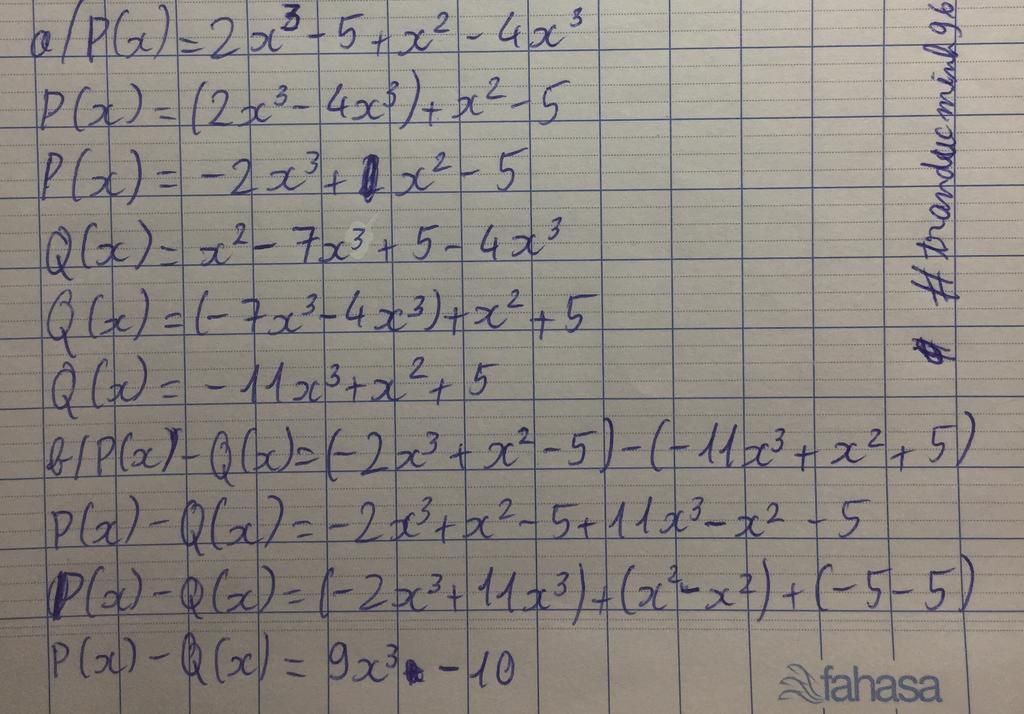 a/P(x)=2x³-5+x²-4x³
P(x)=(2x³-4x³)+x²-5
P(x)=-2x³+1x²-5
Q(x)=x²-7x³+5-4x³
Q(x)=(-7x³-4x³)+x²+5
Q(x)=-11x³+x²+5
b/P(x)-Q(x)=(-2x³+x²-5)-(-11x³+x²+5)
P(x)-Q(x)=-2x³+x²-5+11x³-x²-5
P(x)-Q(x)=(-2x³+11x³)+(x²-x²)+(-5-5)
P(x)-Q(x)=9x³-10
#tranducminh96
fahasa